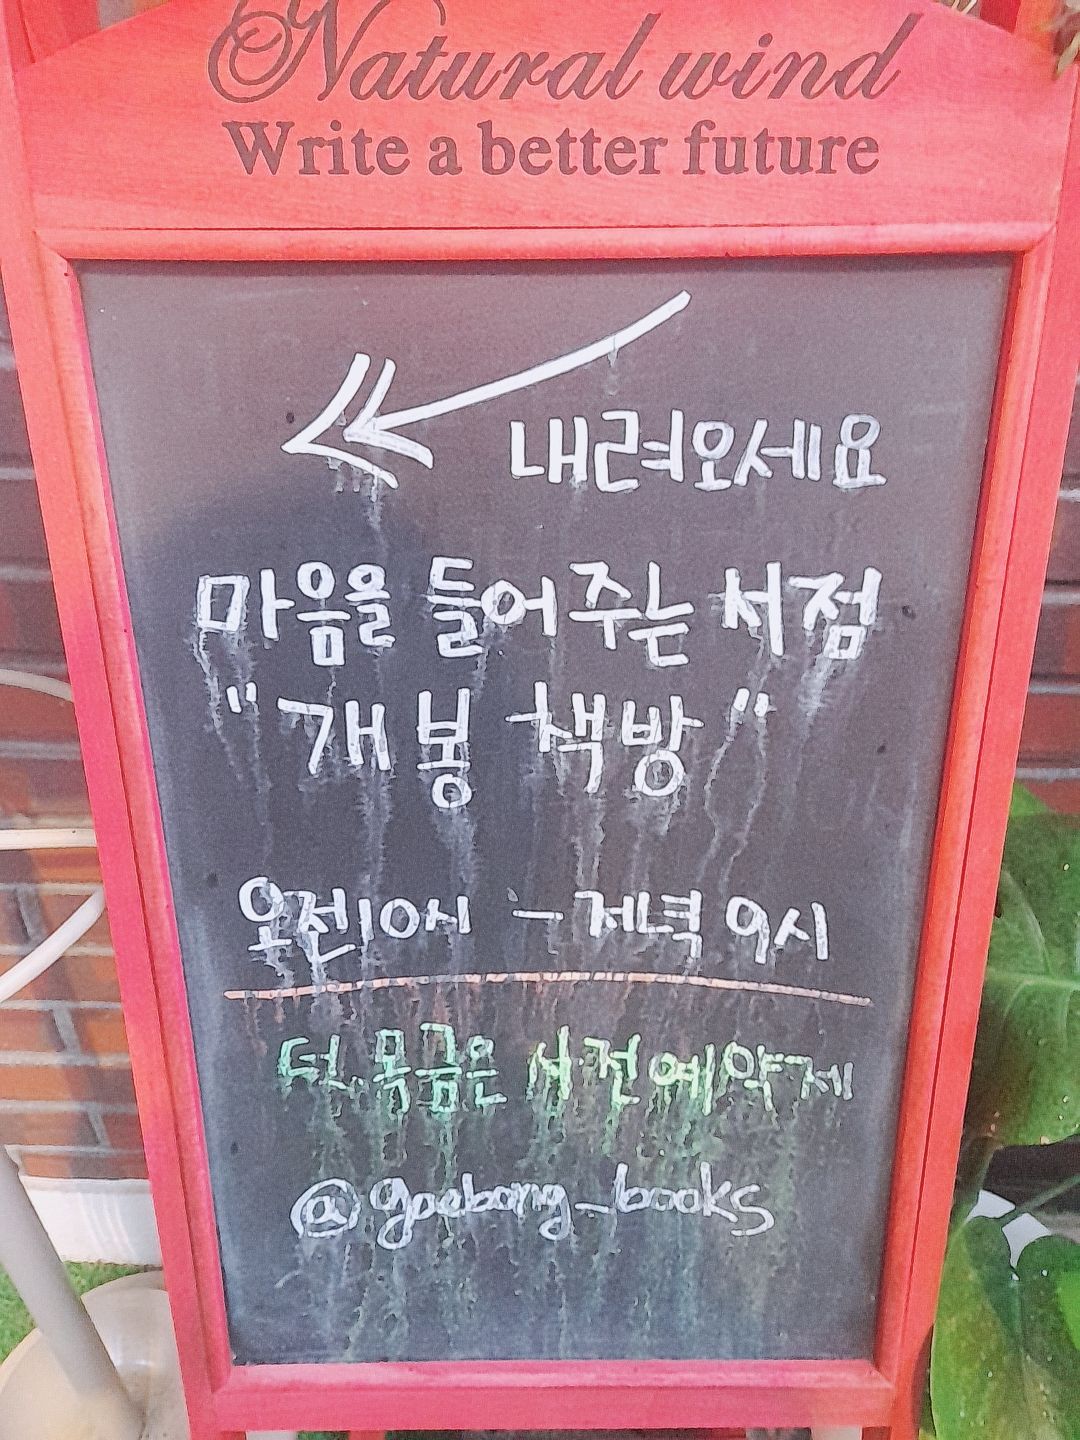 Natural wind
Write a better future
내려오세요
마음을 들어주는 서점
"개봉 책방"
오전10시 - 저녁 9시
사전예약제
@gaebong_books